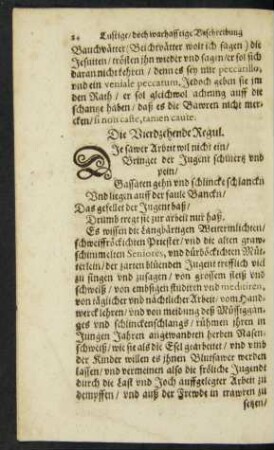 24 Lustige / doch warhafftige Beschreibung
Bauchvätter (Beichvätter wolt ich sagen) die
Jesuiten / trösten ihn wieder vnd sagen / er sol sich
daran nicht kehren / denn es sey nur peccarillo,
vnd ein veniale peccatum, Jedoch geben sie jm
den Rath / er sol gleichwol achtung auff die
schantze haben / daß es die Bawren nicht mer-
cken / si non castè, tamen cautè.
Die Vierdzehende Regul.
DIe sawer Arbeit wil nicht ein /
Bringet der Jugent schmertz vnd
pein /
Gassaten gehn vnd schlincke schlanckn
Vnd liegen auff der faule Banckn /
Das gefellet der Jugent baß /
Drumb tregt sie zur arbeit nur haß.
Es wissen die Langbärtigen Wettermilichten /
schweiffröckichten Priester / vnd die alten graw-
schimmelten Seniores, vnd dürböckichten Müt-
terlein / der zarten blüenden Jugent trefflich viel
zu singen vnd zusagen / von grossem fleiß vnd
schweiß / von embsigen studiren vnd meditiren,
von täglicher vnd nächtlicher Arbeit / vom Hand-
werck lehren / vnd von meidung deß Müssiggan-
ges vnd schlinckenschlangs / rühmen jhren in
Jungen Jahren angewandten herben Nasen-
schweiß / wie sie als die Esel gearbeitet / vnd vmb
der Kinder willen es jhnen Blutsawer werden
lassen / vnd vermeinen also die fröliche Jugende
durch die Last vnd Joch auffgelegter Arbeit zu
dempffen / vnd auß der Frewde in trawren zu
setzen /